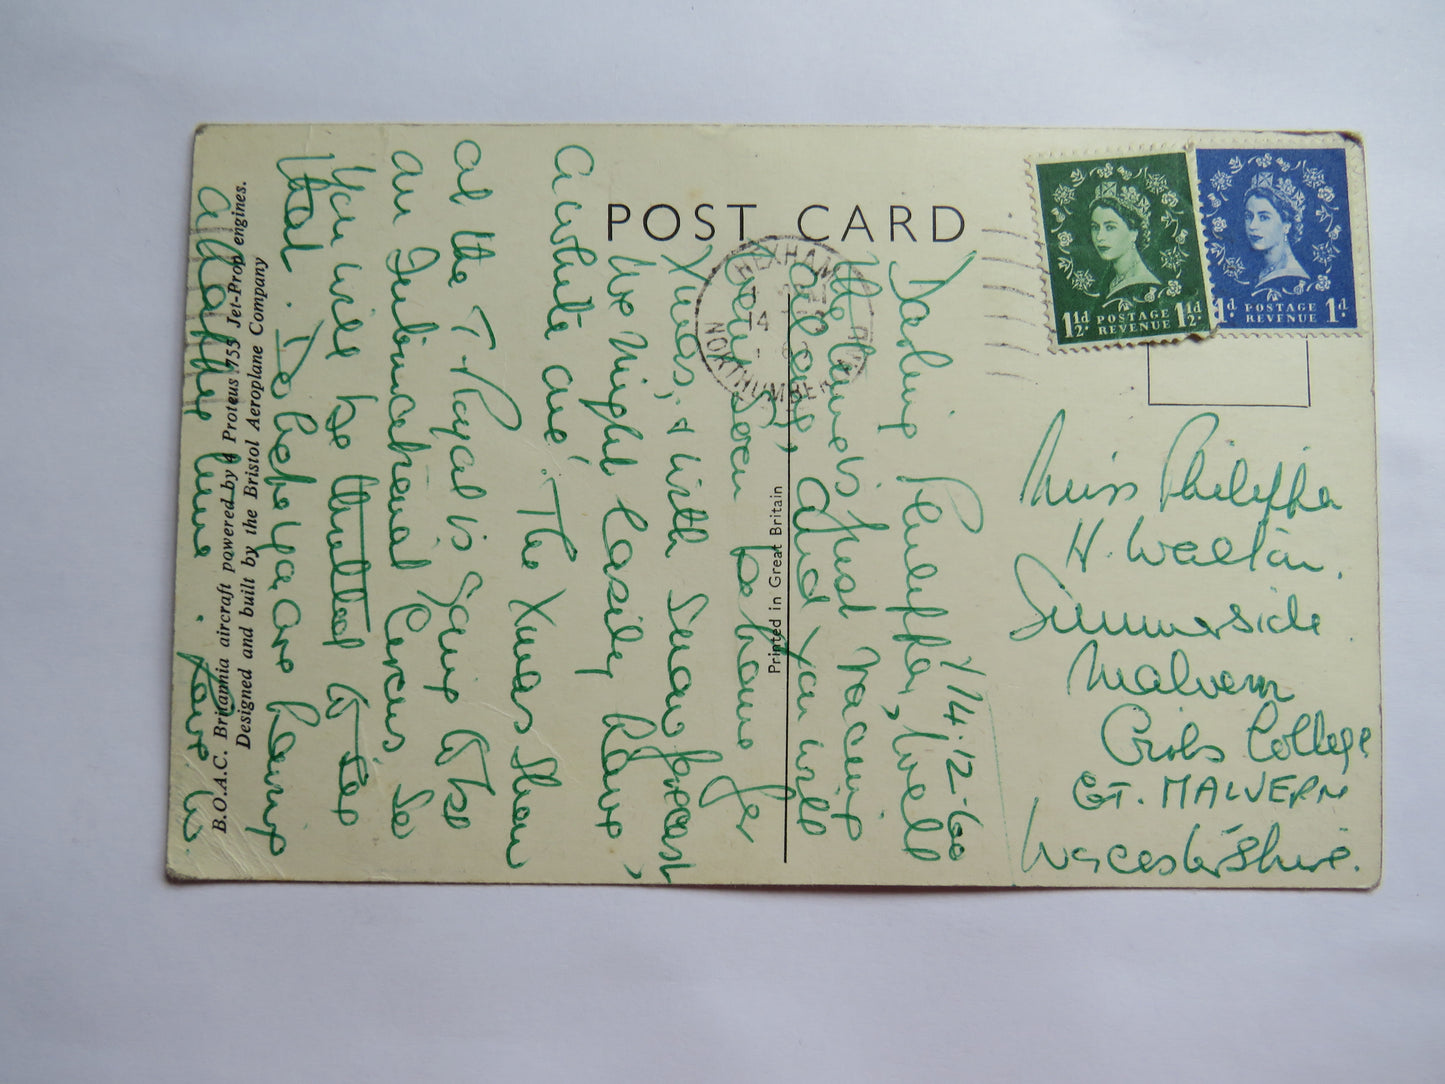 POST CARD
B.O.A.C. Britannia aircraft powered by 4 Proteus 755 Jet-Prop engines.
Designed and built by the Bristol Aeroplane Company
Printed in Great Britain
HEXHAM
14
NORTHUMBERLAND
1½d POSTAGE REVENUE 1½d
1d POSTAGE REVENUE 1d
14.12.60
Darling Philippa, Well
the time is just racing
along, and you will
been soon be home for
Xmas, & with snow forecast,
we might easily have
a white one. The Xmas Show
at the T. Royal is going to be
an International Circus. So
you will be thrilled to see
that. I do hope you are having
a lovely time. Love
Miss Philippa
H. Walton.
Summerside
Malvern
Girls College
GT. MALVERN
Worcestershire.